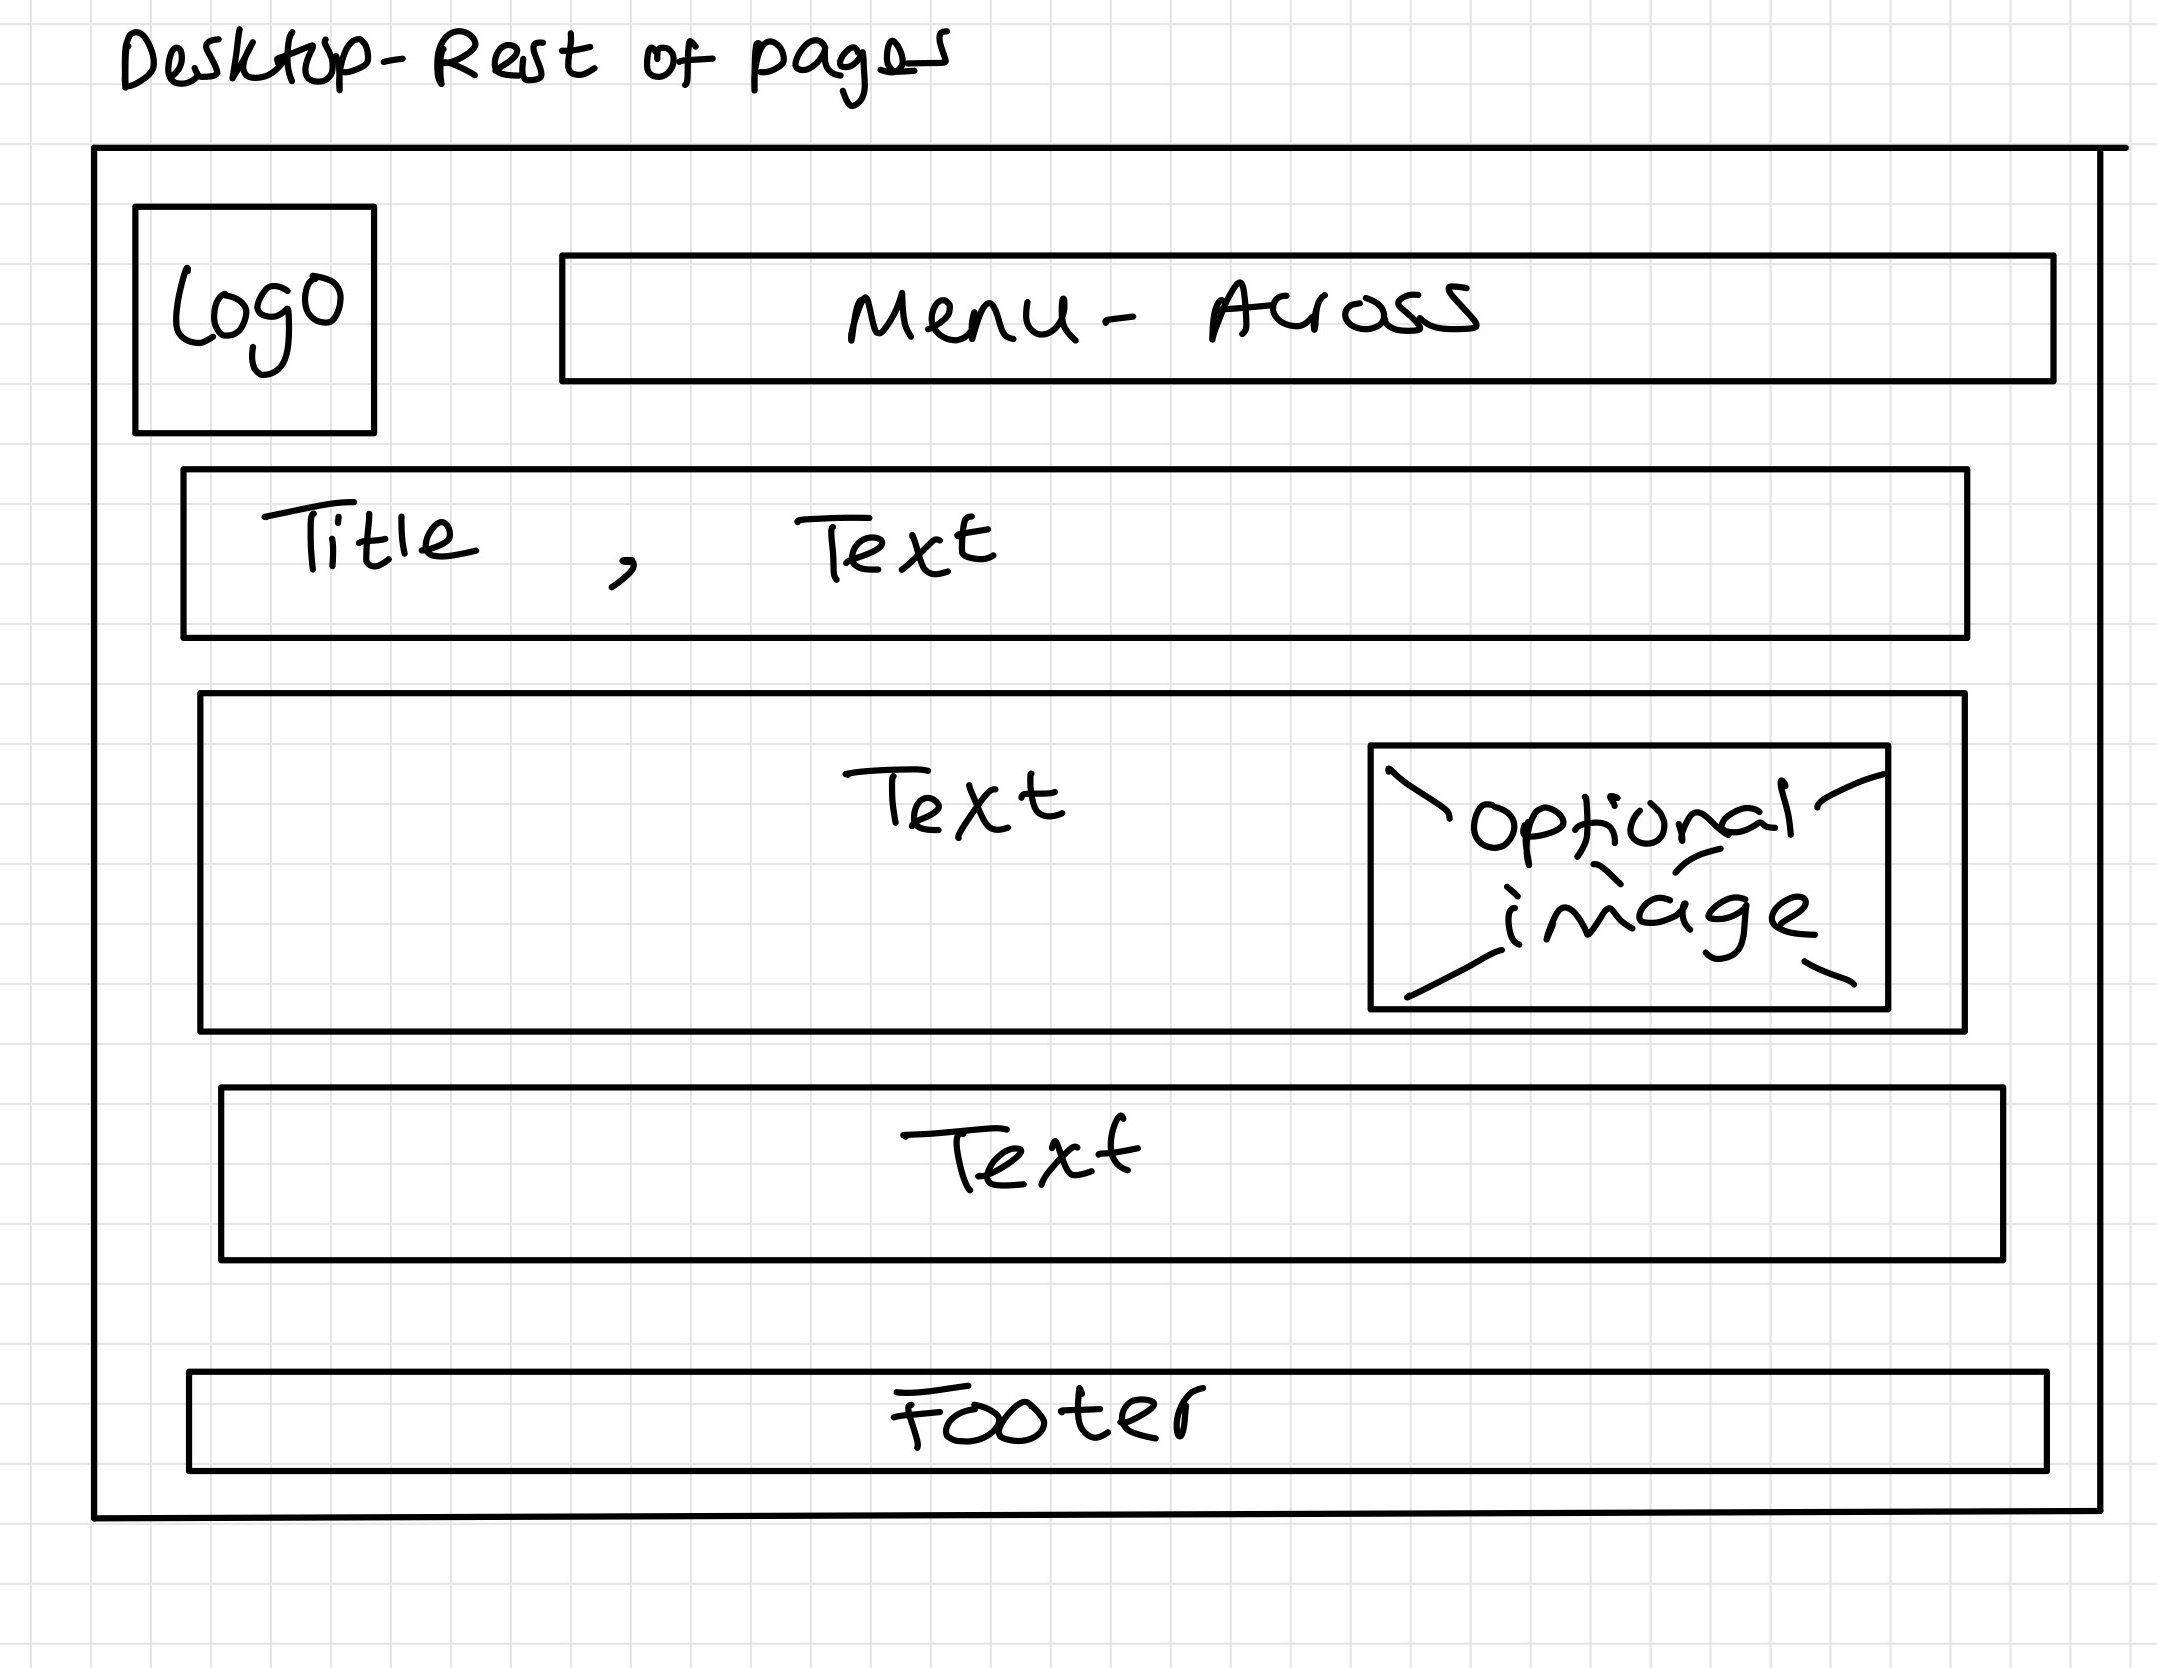 Desktop - Rest of pages
Logo
Menu - Across
Title , Text
Text
optional
image
Text
Footer